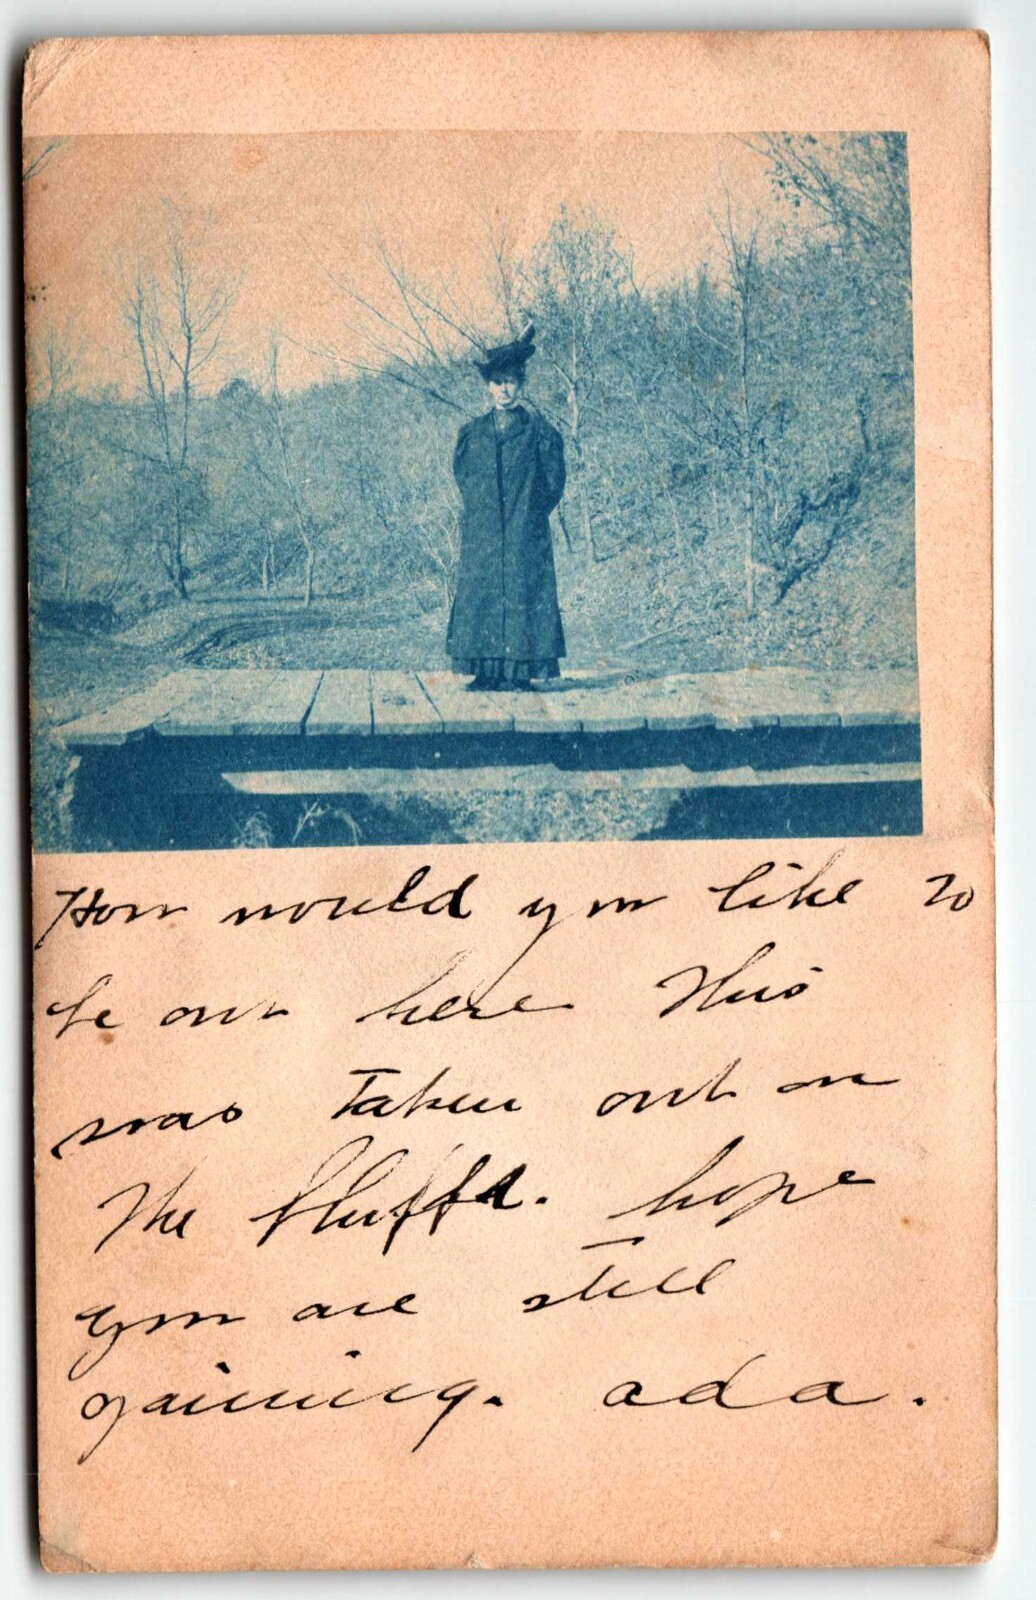 How would you like to
be out here This
was Taken out on
The bluffs. hope
you are still
gaining. ada.